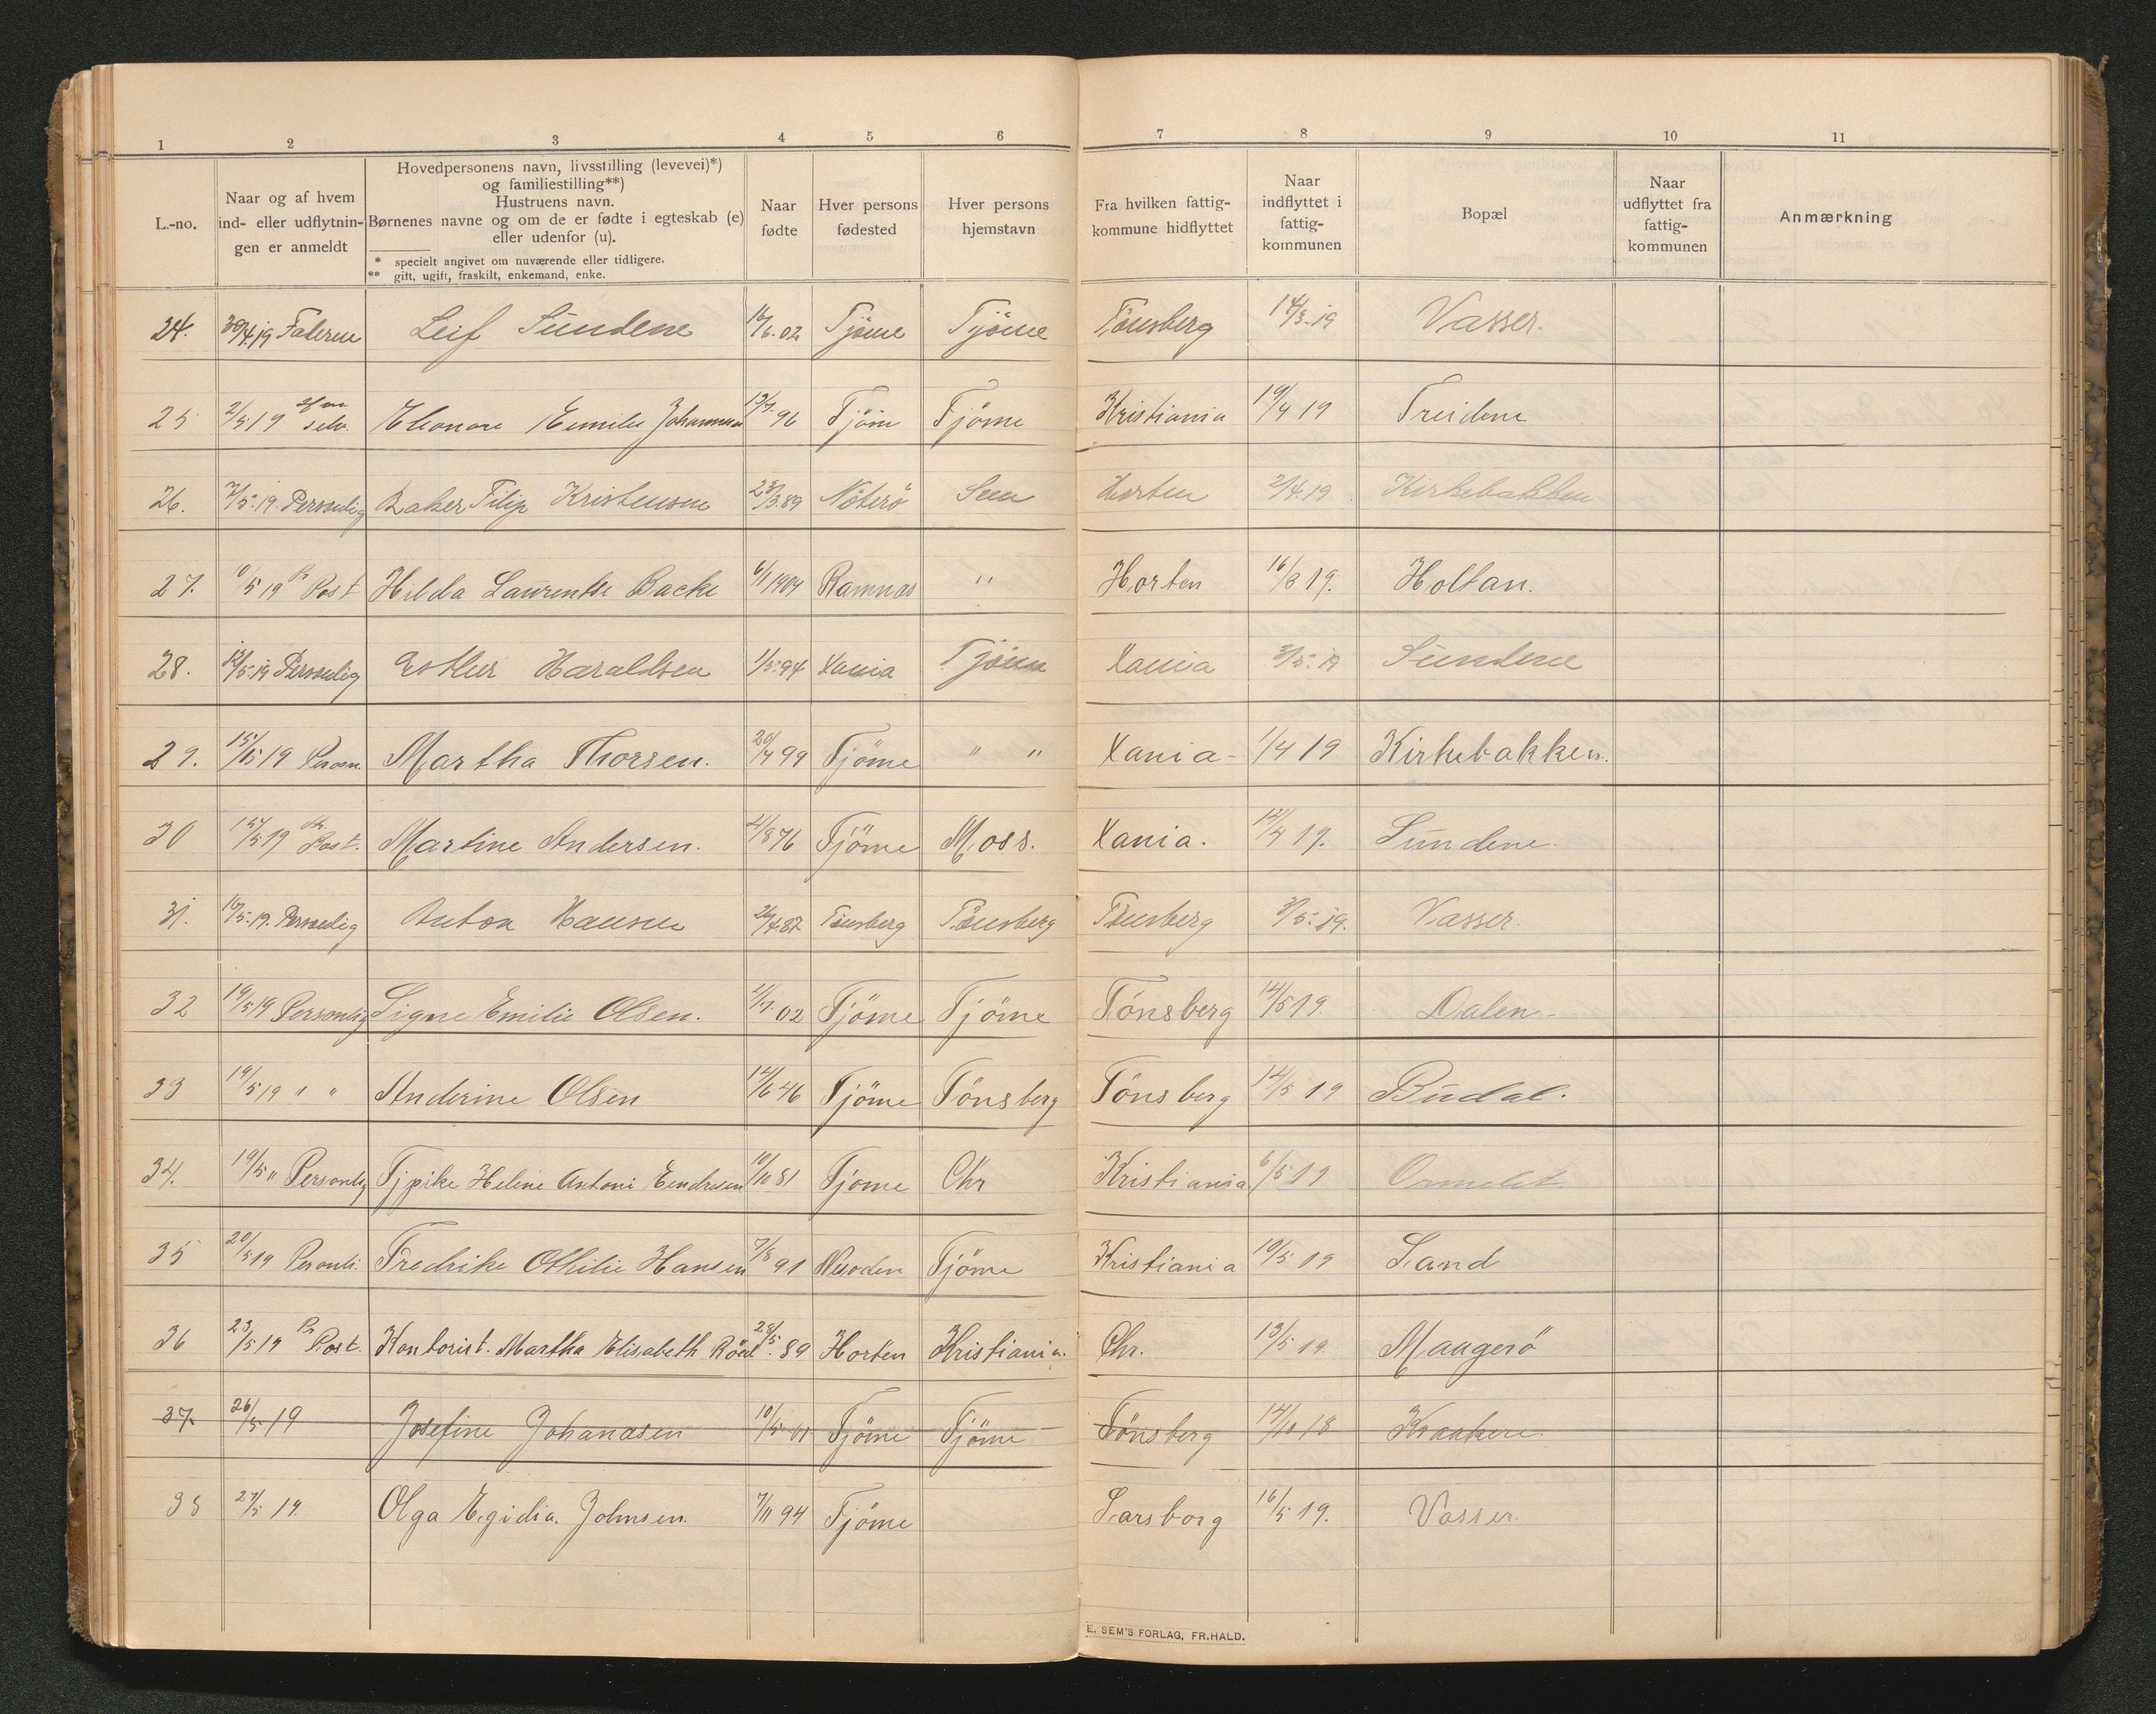 1 2 3 4 5 6 7 8 9 10 11
L.-no.
Naar og af hvem
ind- eller udflytnin-
gen er anmeldt
Hovedpersonens navn, livsstilling (levevei)*)
og familiestilling**)
Hustruens navn.
Børnenes navne og om de er fødte i egteskab (e)
eller udenfor (u).
* specielt angivet om nuværende eller tidligere.
** gift, ugift, fraskilt, enkemand, enke.
Naar
fødte
Hver persons
fødested
Hver persons
hjemstavn
Fra hvilken fattig-
kommune hidflyttet
Naar
indflyttet i
fattig-
kommunen
Bopæl
Naar
udflyttet fra
fattig-
kommunen
Anmærkning
24. 30/4 19 Faderen Leif Sundene 16/6-02 Tjöme Tjöme Tönsberg 14/3-19 Vasser.
25 2/5 19 selv. Eleonore Emilie Johannesen 96 Tjöm Tjöme Kristiania 19/4 19 Treidene
26. 7/5-19. Personlig Filip Kristensen 23/3 89 Nöterö Sem Horten 2/4 19 Kirkebakken
27. 10/5 19 Pr Post Hilda Laurentse Backe 6/1 1904 Ramnas " Horten 16/3 19. Holtan.
28. 12/5-19 Personlig Esther Haraldsen 1/5-94 Xania Tjöme Xania 3/5-19 Sundene
29. 15/5 19 Person. Martha Thorsen. 20/4 99 Tjöme " " Xania- 1/4 19 Kirkebakken.
30 15/5 19 Pr Post. Martine Andersen. 21/8 76 Tjöme Moss. Xania. 12/4 19. Sundene.
31. 16/5-19. Personlig Anton Hansen 26/4 87 Tönsberg Tönsberg Tönsberg 3/5-19. Vasser.
32 19/5 19 Personlig Signe Emilie Olsen. 2/7 02 Tjöme Tjöme Tönsberg 14/5 19. Dalen-
33 19/5 19 " " Anderine Olsen 14/6 46 Tjöme Tönsberg Tönsberg 14/5 19 Budal.
34. 19/5 " Personlig Helene Antoni Endresen 10/10 81 Tjöme Chr Kristiania 6/5 19 Ormelet
35 20/5 19 Personli. Fredrike Othilie Hansen 7/8 91 Nesoden Tjöme Kristiania 10/5 19 Sand
36 23/5 19 Pr Post. Kontorist. Martha Elisabeth Röed 28/5-89 Horten Kristiania. Chr. 13/5 19. Maagerö
37. 26/5-19 Josefine Johanasen 10/5 01 Tjöme Tjöme Tönsberg 14/10 18 Kraakere.
38 27/5 19. Olga Egidia. Johnsen. 7/11 94 Tjöme Sarsborg 16/5 19. Vasser.
E. SEM'S FORLAG, FR.HALD.